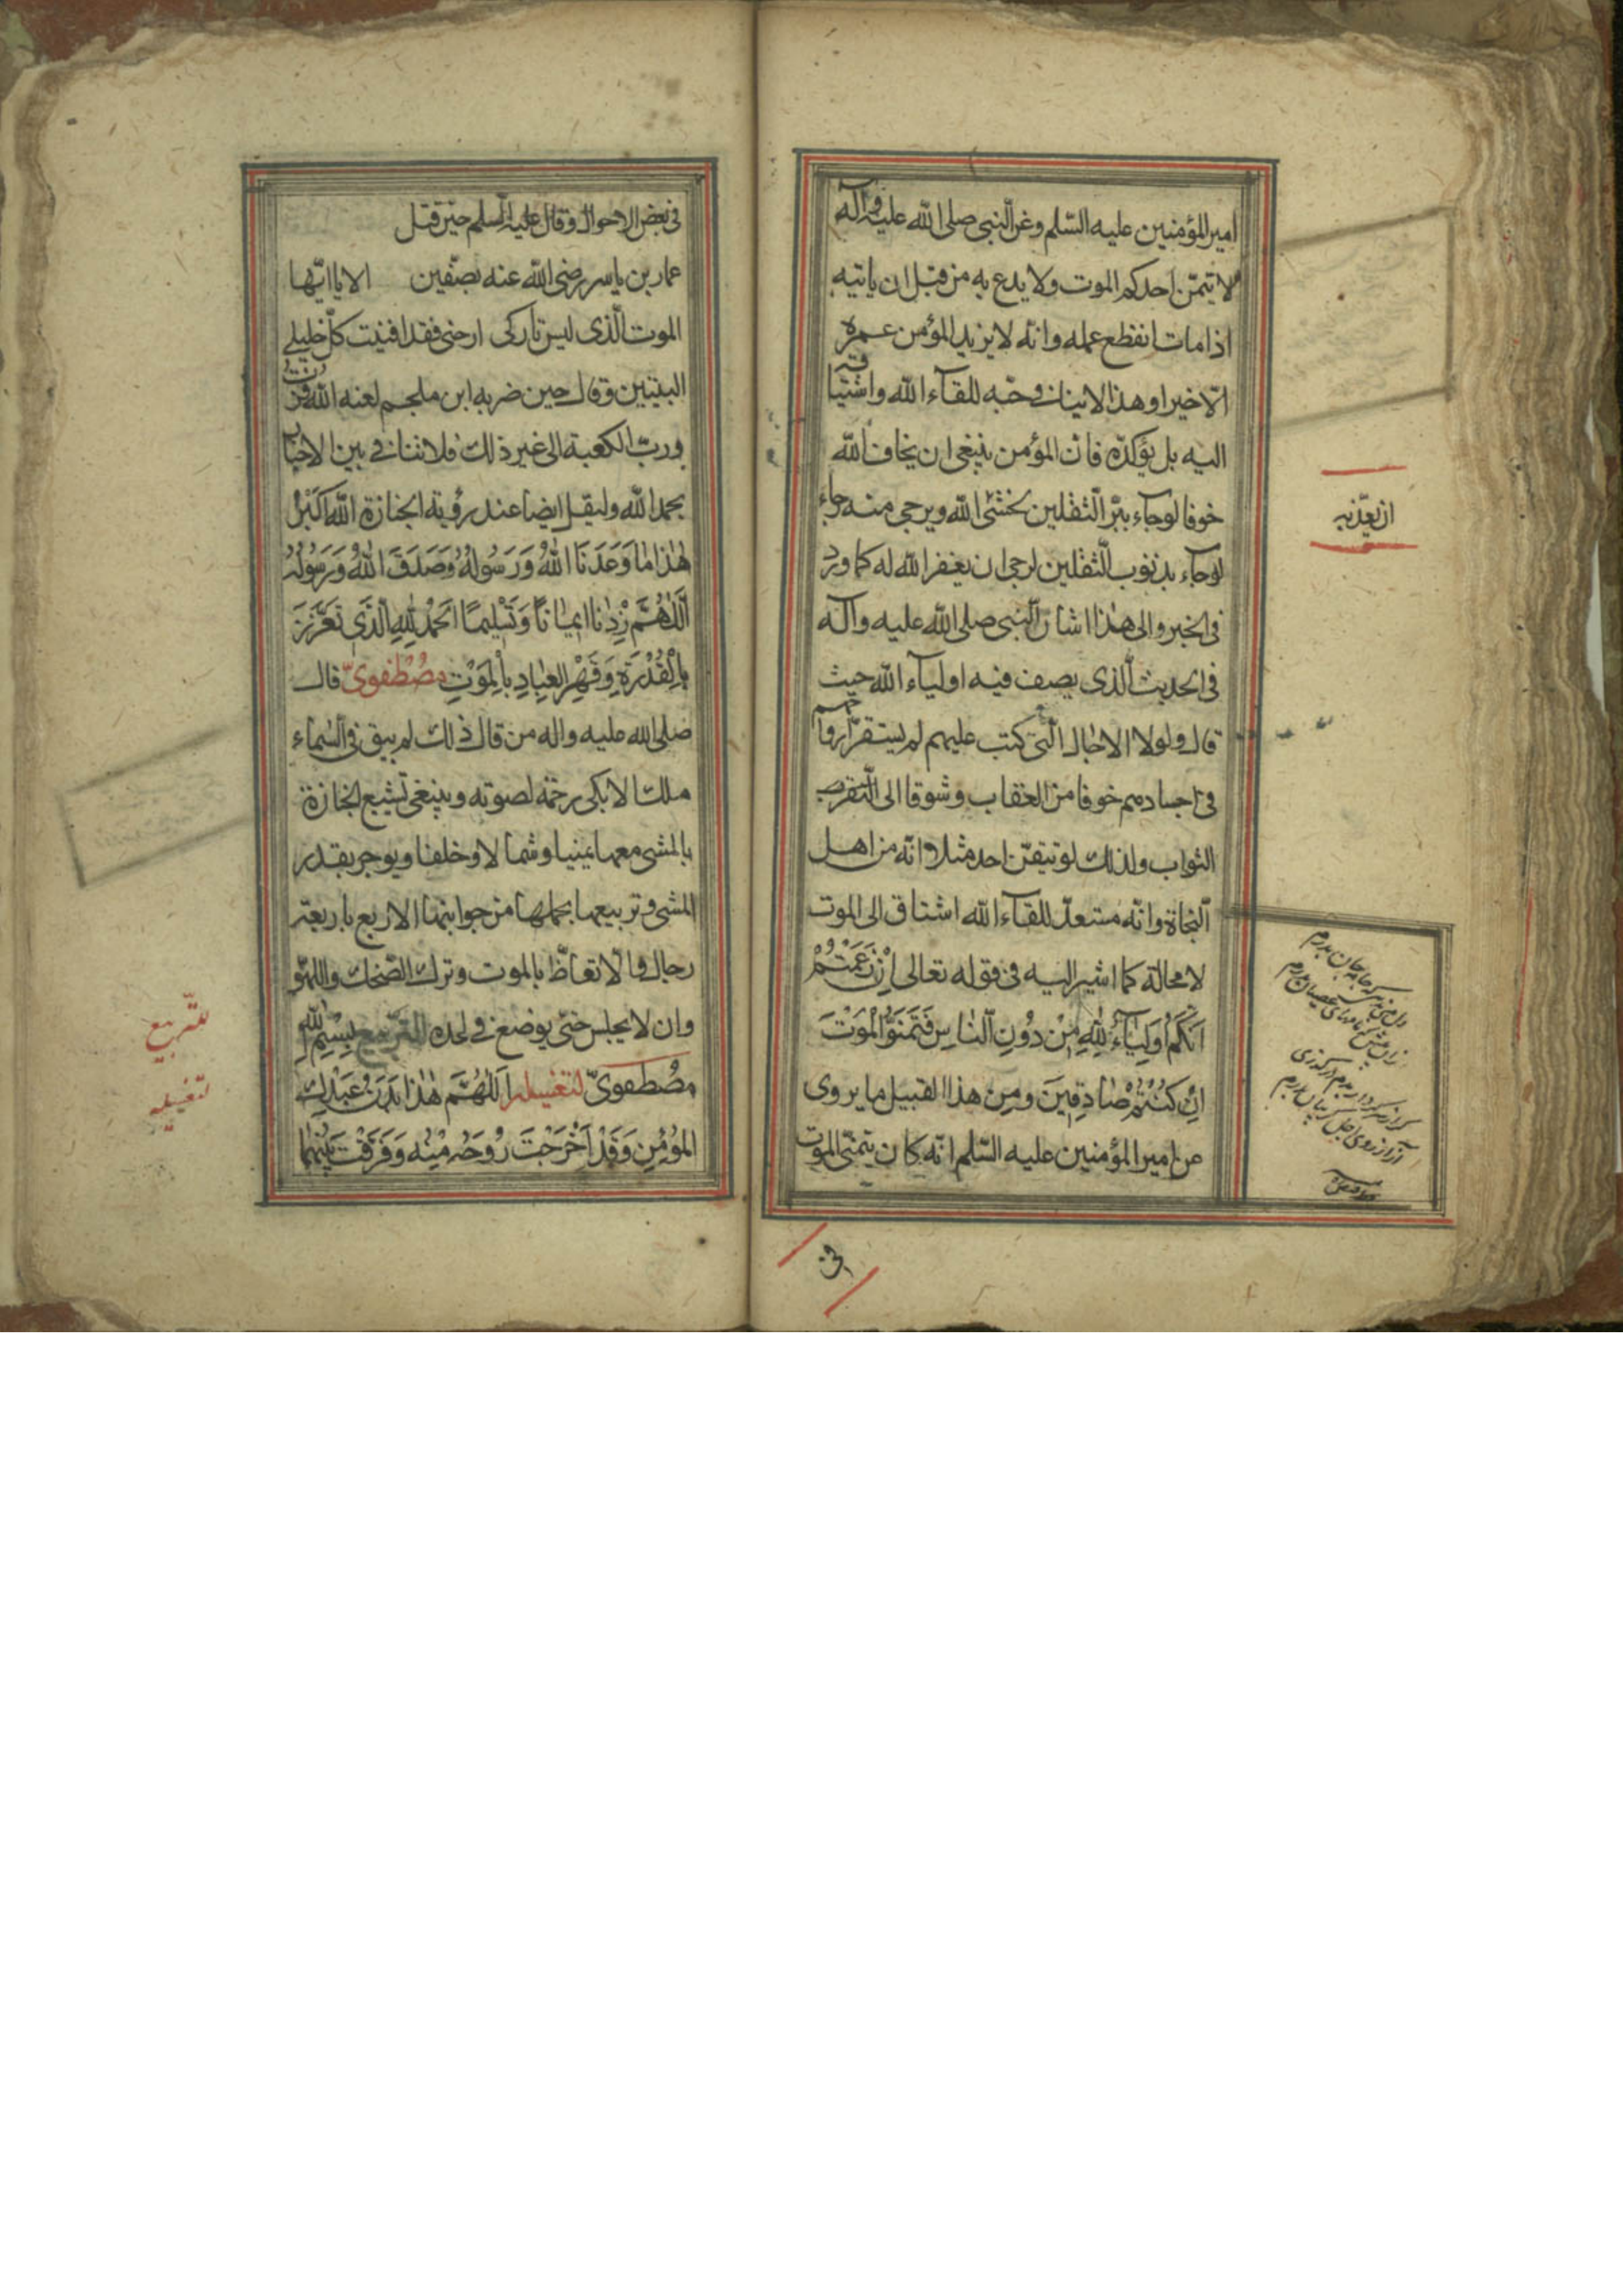 امیر المؤمنین علیه السّلم وعن النّبی صلی الله علیه وآله
لا یتمنّ احدکم الموت ولا یدع به من قبل ان یاتیه
اذا مات انقطع عمله وانّه لا یزید المؤمن عمره
الّا خیرا وهذا لا ینافی حبّه للقآء الله واشتیاقه
الیه بل یؤکدّه فانّ المؤمن ینبغی ان یخاف الله
خوفا لو جآء ببرّ الثقلین یخشی الله ویرجی منه رجاء
لو جآء بذنوب الثّقلین لرجی ان یغفر الله له کما ورد
فی الخبر والی هذا اشار النّبی صلی الله علیه وآله
فی الحدیث الّذی یصف فیه اولیآء الله حیث
قال ولولا الاجال الّتی کتب علیهم لم یستقرّ ارواحهم
فی اجسادهم خوفا من العقاب وشوقا الی
الثواب ولذلک لو تیقّن احد مثلا انّه من اهل
النّجاة وانّه مستعدّ للقآء الله اشتاق الی الموت
لا محالة کما اشیر الیه فی قوله تعالی اِنْ زَعَمْتُمْ
اَنَّکُمْ اَوْلِیَآءُ لِلّٰهِ مِنْ دُونِ النّاسِ فَتَمَنَّوُا الْمَوْتَ
اِنْ کُنْتُمْ صَادِقِینَ ومن هذا القبیل ما یروی
عن امیر المؤمنین علیه السّلم انّه کان یتمنّی الموت
فی
فی بعض الاحوال وقال علیه السلم حین قتل
عمار بن یاسر رضی الله عنه بصفّین الا یا ایّها
الموت الّذی لیس تارکی ارحنی فقد افنیت کلّ خلیلی
البیتین وقال حین ضربه ابن ملجم لعنه الله فزت
وربّ الکعبة الی غیر ذلک فلا تنافی بین الاخبار
بحمد الله ولیقل ایضا عند رؤیة الجنازة اَللهُ اَکْبَرُ
هٰذَا مٰا وَعَدَنَا اللهُ وَرَسُولُهُ وَصَدَقَ اللهُ وَرَسُولُهُ
اَللّٰهُمَّ زِدْنٰا ایمٰانًا وَتَسْلیمًا اَلْحَمْدُ لِلّٰهِ الَّذی تَعَزَّزَ
بِالْقُدْرَةِ وَقَهَرَ الْعِبٰادَ بِالْمَوْتِ مصْطَفویّ قال
صلی الله علیه واله من قال ذلک لم یبق فی السّماء
ملک الّا بکی رحمة لصوته وینبغی تشییع الجنازة
بالمشی معها یمینا وشمالا وخلفا ویوجر بقدر
المشی وتربیعها بحملها من جوانبها الاربع باربعة
رجال والاتعاظ بالموت وترک الضّحک واللهو
وان لا یجلس حتی یوضع فی لحده بِسْمِ اللهِ
مصْطَفویّ لتغسیله اَللّٰهُمَّ هٰذَا بَدَنُ عَبْدِکَ
الْمُؤْمِنِ وَقَدْ اَخْرَجْتَ رُوحَهُ مِنْهُ وَفَرَّقْتَ بَیْنَهُمٰا
للتّربیع
لتغسیله